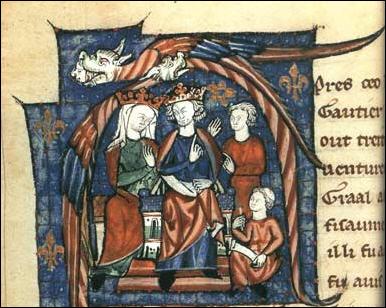 pres ce
Gautier
out tret
uenture
Graal a
fisaum
illi fu
fu aui